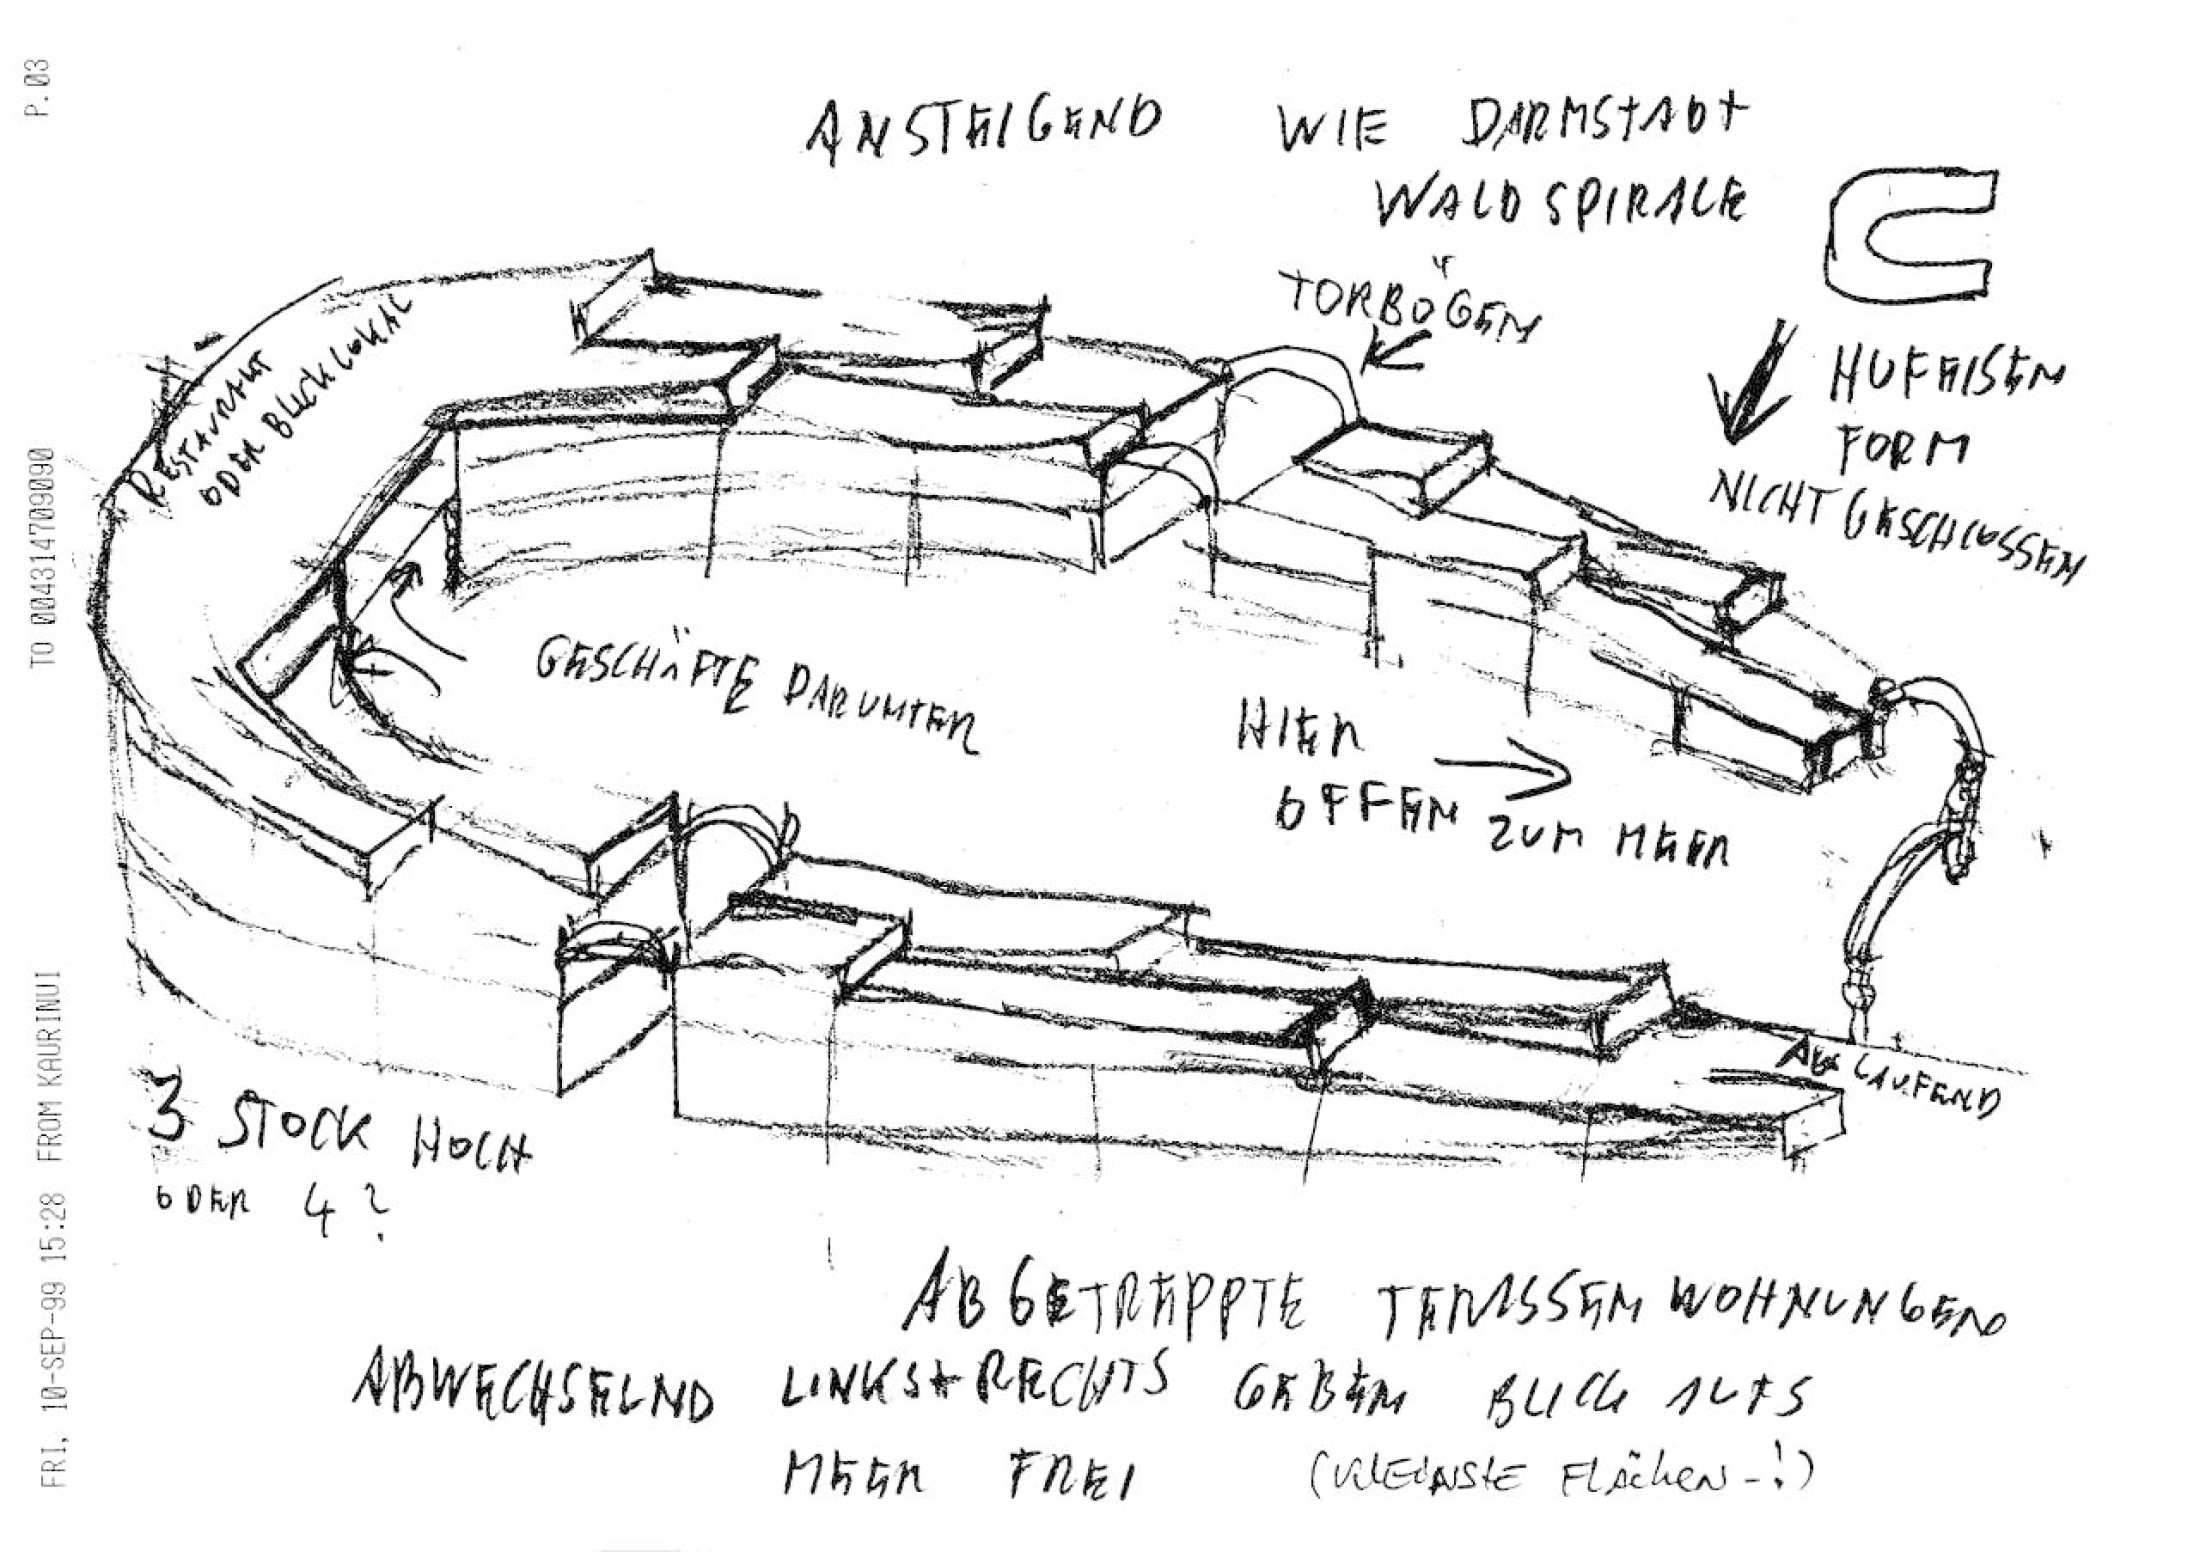 P.03
TO 00431471709090
FROM KAURINUI
FRI, 10-SEP-99 15:28
ANSTEIGEND WIE DARMSTADT
WALDSPIRALE
TORBÖGEN
HUFEISEN
FORM
NICHT GESCHLOSSEN
RESTAURANT
ODER BLICKLOKAL
GESCHÄFTE DARUNTER
HIER
OFFEN ZUM MEER
AUSLAUFEND
3 STOCK HOCH
ODER 4?
ABGETREPPTE TERASSENWOHNUNGEN
ABWECHSELND LINKS + RECHTS GEBEN BLICK AUFS
MEER FREI (KLEINSTE FLächen-!)